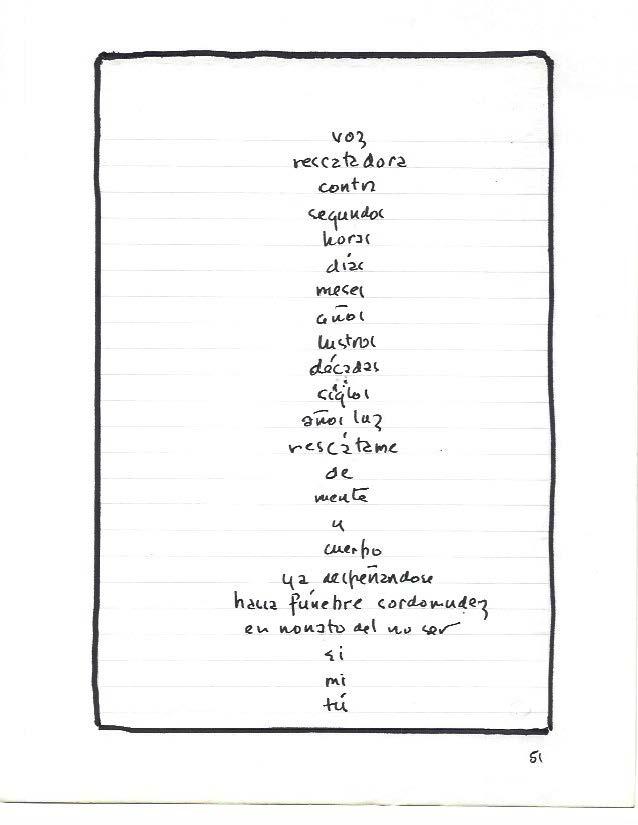 voz
rescatadora
contra
segundos
horas
días
meses
años
lustros
décadas
siglos
años luz
rescátame
de
mente
y
cuerpo
ya despeñándose
hacia fúnebre sordomudez
en nonato del no ser
si
mi
tú
51